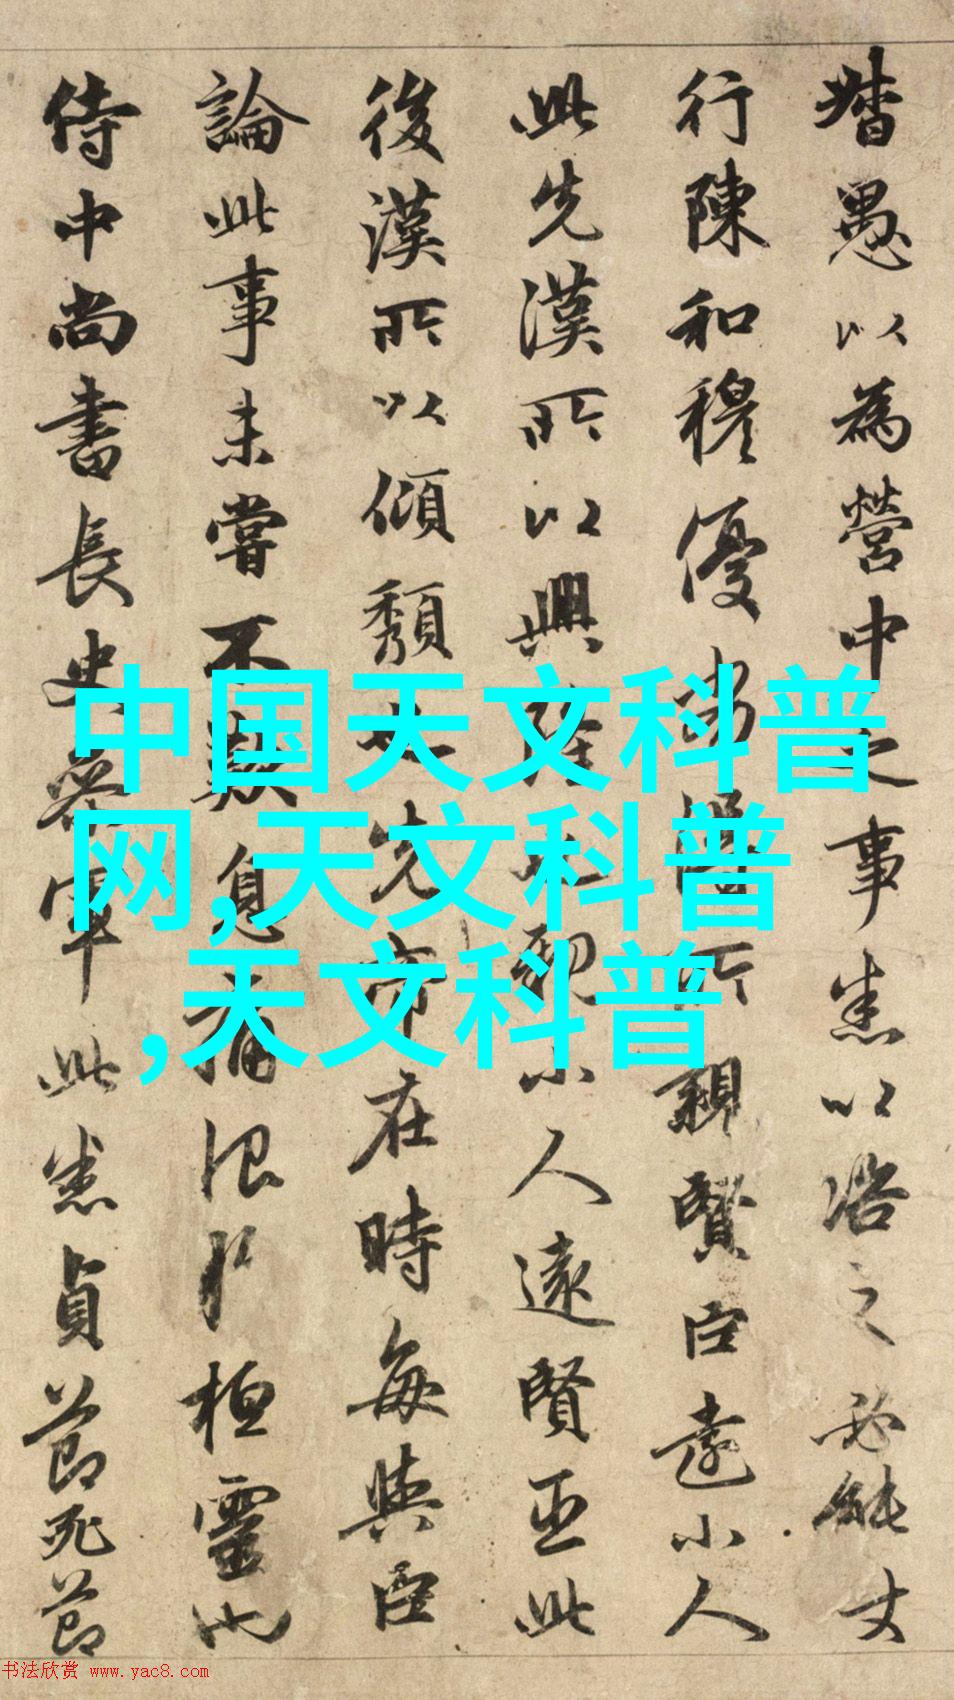 督愚以為營中之事悉以咨之必能
行陳和穆優劣得所親賢臣遠小人
此先漢所以興隆也親小人遠賢臣此
後漢所以傾頹也先帝在時每與臣
論此事未嘗不歎息痛恨於桓靈也
侍中尚書長史參軍此悉貞節死節
中国天文科普
网,天文科普
,天文科普
书法欣赏 www.yac8.com